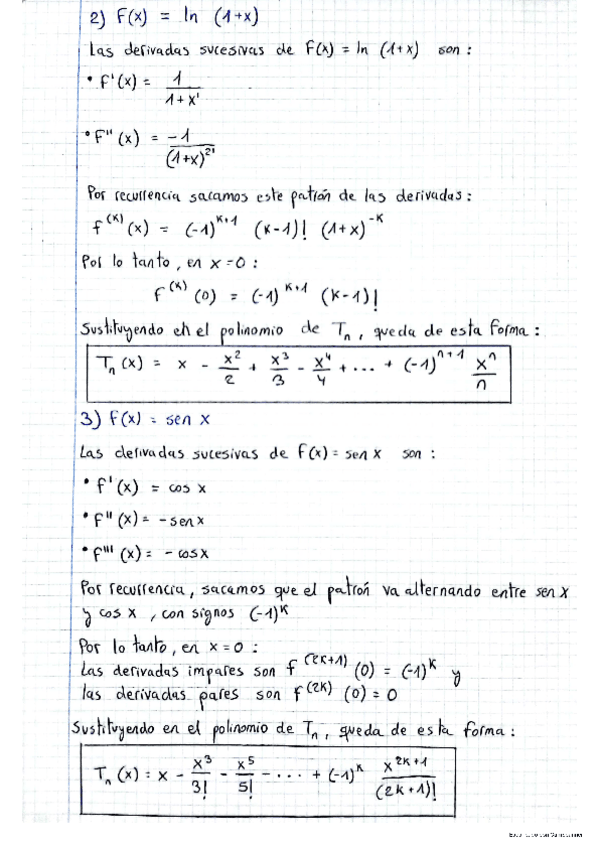 2) F(x) = ln (1+x)
Las derivadas sucesivas de F(x) = ln (1+x) son :
• f'(x) = 1 / (1+x)¹
• F''(x) = -1 / (1+x)²
Por recurrencia sacamos este patrón de las derivadas :
f^(k)(x) = (-1)^(k+1) (k-1)! (1+x)^-k
Por lo tanto, en x=0 :
f^(k)(0) = (-1)^(k+1) (k-1)!
Sustituyendo en el polinomio de Tₙ, queda de esta forma :
Tₙ(x) = x - x²/2 + x³/3 - x⁴/4 + ... + (-1)^(n+1) xⁿ/n
3) f(x) = sen x
Las derivadas sucesivas de f(x) = sen x son :
• f'(x) = cos x
• f''(x) = - sen x
• f'''(x) = - cos x
Por recurrencia, sacamos que el patrón va alternando entre sen x
y cos x, con signos (-1)^k
Por lo tanto, en x=0 :
Las derivadas impares son f^(2k+1)(0) = (-1)^k y
las derivadas pares son f^(2k)(0) = 0
Sustituyendo en el polinomio de Tₙ, queda de esta forma :
Tₙ(x) = x - x³/3! - x⁵/5! - ... + (-1)^k x^(2k+1)/(2k+1)!